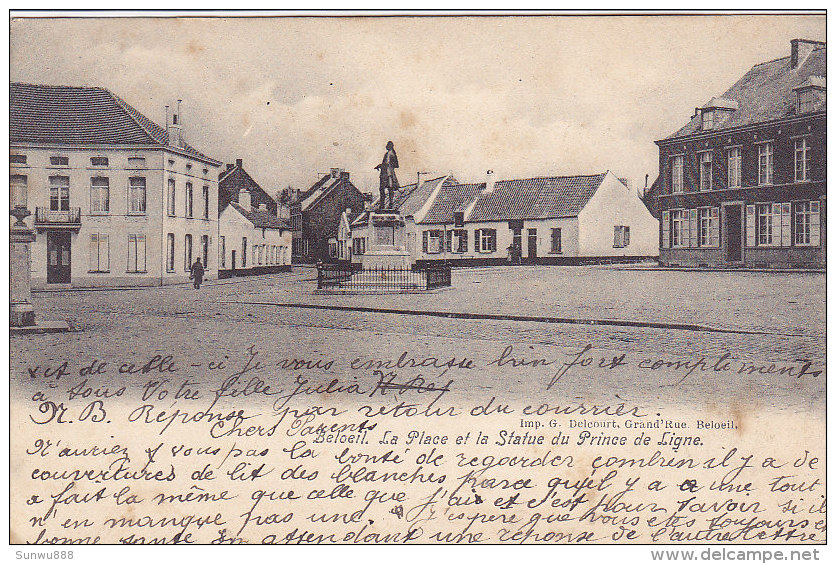 de celle-ci Je vous embrasse bien fort compliments
a tous Votre fille Julia
N.B. Réponse par retour du courrier.
Imp. G. Delcourt, Grand'Rue. Beloeil.
Chers Parents
Beloeil. La Place et la Statue du Prince de Ligne.
N'auriez vous pas la bonté de regarder combien il y a de
couvertures de lit des blanches parce qu'il y a une tout
a fait la même que celle que j'ai et c'est pour savoir si il
n'en manque pas une j'espère que vous êtes toujours
bonne santé en attendant une réponse de l'autre lettre
Sunwu888
www.delcampe.net